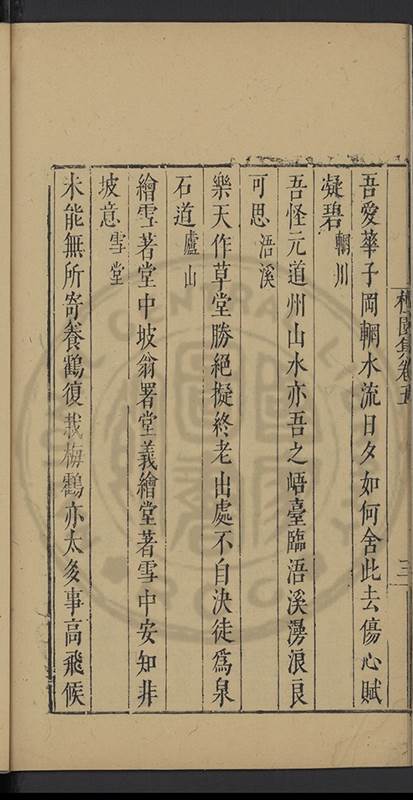 吾愛華子岡輞水流日夕如何舍此去傷心賦
凝碧輞川
吾怪元道州山水亦吾之峿臺臨浯溪漫浪良
可思浯溪
樂天作草堂勝絕擬終老出處不自決徒為泉
石道廬山
繪雪著堂中坡翁署堂義繪堂著雪中安知非
坡意雪堂
未能無所寄養鶴復栽梅鶴亦太多事高飛候
集卷五
三